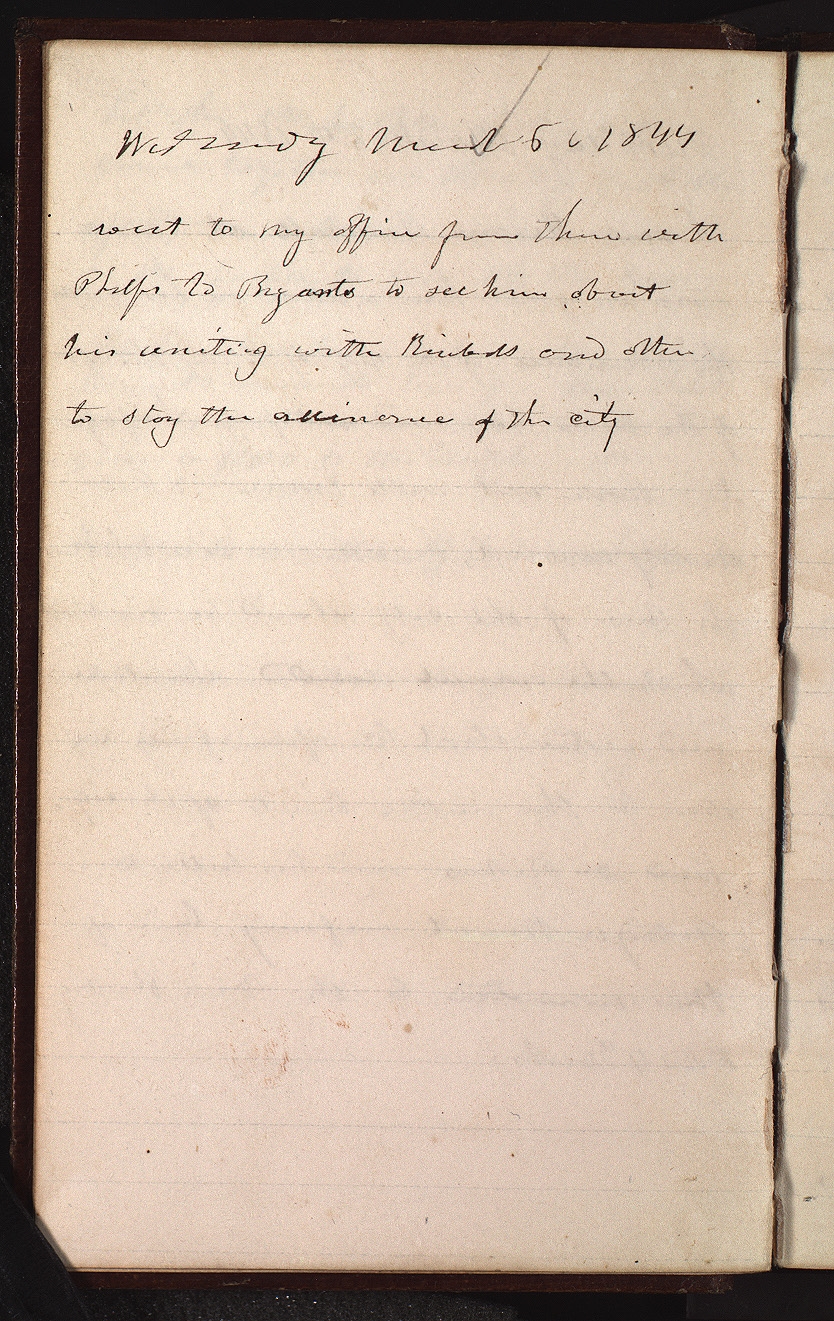 Wednesday March 6 1844
went to my office from there with
Phelps to Bryants to see him about
his uniting with and other
to stay the of the city